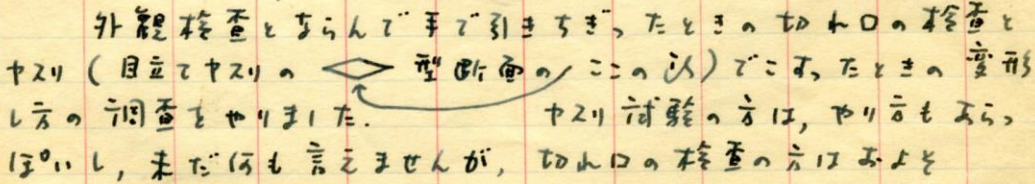 外観検査とならんで手で引きちぎったときの切れ口の検査と
ヤスリ(目立てヤスリの ◇ 型断面の ここの 次)でこすったときの変形
し方の調査をやりました. ヤスリ試験の方は, やり方もあらっ
ぽいし, 未だ何も言えませんが, 切れ口の検査の方はおよそ